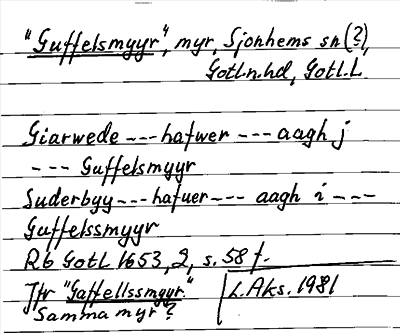 "Guffelsmyyr", myr, Sjonhems sn (?),
Gotl.n.hd, Gotl.L
Giarwede --- hafwer --- aagh j
--- Guffelsmyyr
Suderbyy --- hafuer --- aagh i ---
Guffelssmyyr
Rb Gotl 1653, 2, s. 58 f.
Jfr "Gaffellssmyyr."
Samma myr?
L. Aks. 1981